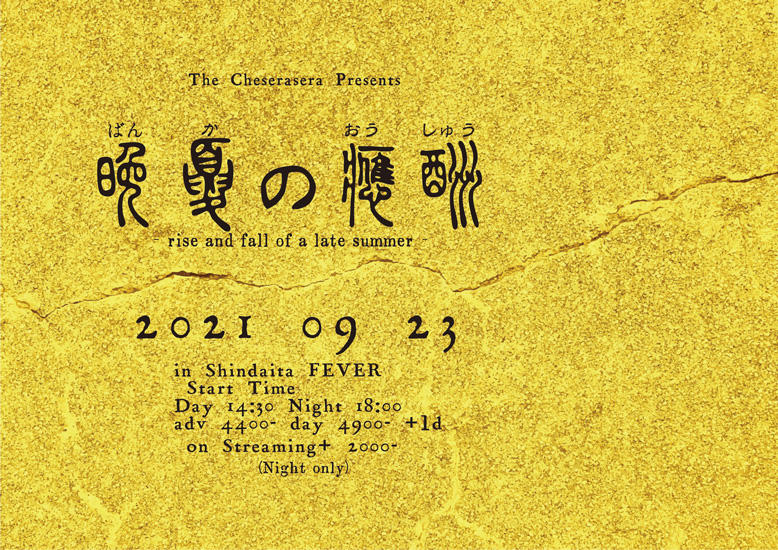 The Cheserasera Presents
ばん か おう しゅう
晩夏の應酬
- rise and fall of a late summer -
2021 09 23
in Shindaita FEVER
Start Time
Day 14:30 Night 18:00
adv 4400- day 4900- +1d
on Streaming+ 2000-
(Night only)